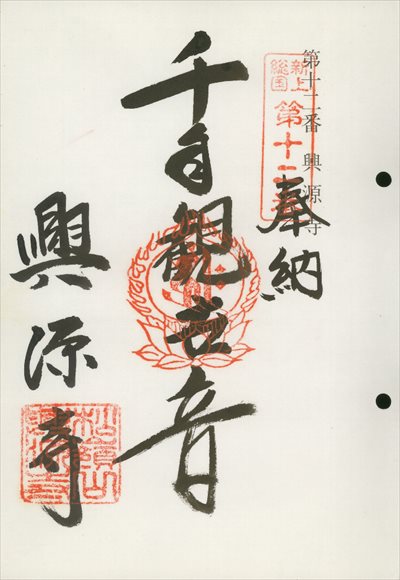 第十二番 興源寺
新上
総国
第十二番
奉納
千手観世音
興源寺